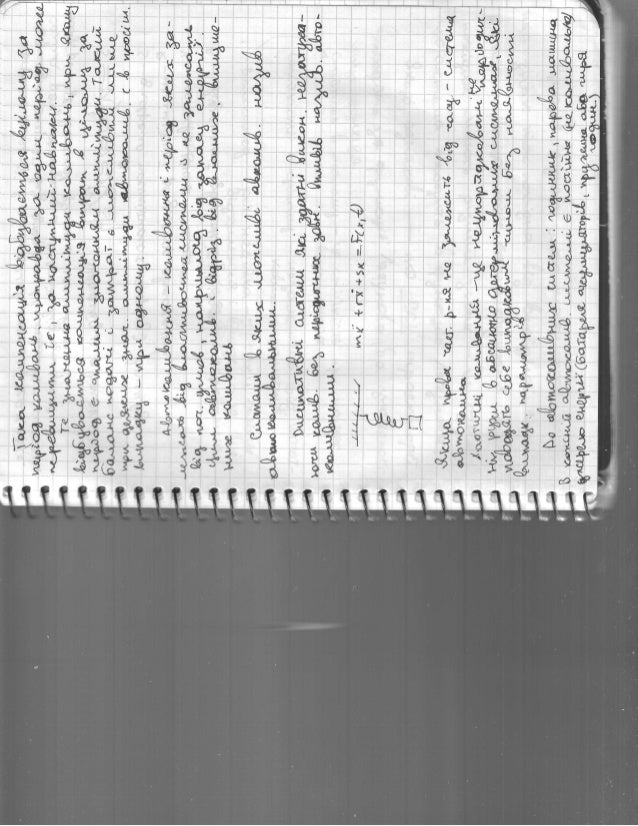 Така компенсація відбувається в цілому за
період коливань, правда за один період може
перевищити її, за наступний навпаки.
Те значення амплітуди коливань, при якому
відбувається компенсація витрат в цілому за
період є сталим значенням амплітуди. Такий
баланс подачі і затрат є можливий лише
при певних знач. амплітуди автоколив. і в простіш.
випадку – при одному.
Автоколивання – коливання і період яких за-
лежать від властивостей системи і не залежать
від поч. умов, наприклад від запасу енергії.
Цим автоколив. і відріз. від власних, вимуше-
них коливань
Системи в яких можливі автолив. назив
автоколивальними.
Дисипативні системи які здатні викон. незатуха-
ючі колив. без періодичних зовн. впливів назив. авто-
коливними.
mẍ + rẋ + sx = F(x,t)
Якщо права част. р-ня не залежить від часу – система
автономна
Хаотичні коливання – це неупорядковані неперіодич-
ні рухи в абсолютно детермінованих системах, які
поводять себе випадковим чином без наявності
випадк. параметрів
До автоколивних систем: годинник, парова машина
В кожній автоколив. системі є постійне (не коливальне)
джерело енергії (батарея акумуляторів, пружина або гиря
годин.)